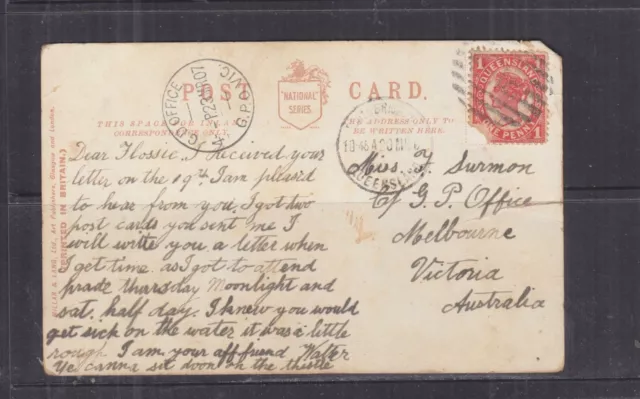 POST CARD.
"NATIONAL"
SERIES.
THIS SPACE
CORRESPONDENCE ONLY
ADDRESS ONLY TO
BE WRITTEN HERE.
MILLAR & LANG, LTD., Art Publishers, Glasgow and London.
(PRINTED IN BRITAIN.)
OFFICE
23 07
G.P.O VIC
10 45 A
QUEENSLAND
QUEENSLAND
1
1
ONE PENNY
Dear Flossie. I Received your
letter on the 19th. I am pleased
to hear from you. I got two
post cards you sent me I
will write you a letter when
I get time. as I got to attend
prade thursday Moonlight and
sat. half day. I knew you would
get sick on the water it was a little
rough. I am your aff friend Walter
Ye canna sit doon on the thistle
Miss F. Surmon
C/ G. P. Office
Melbourne
Victoria
Australia